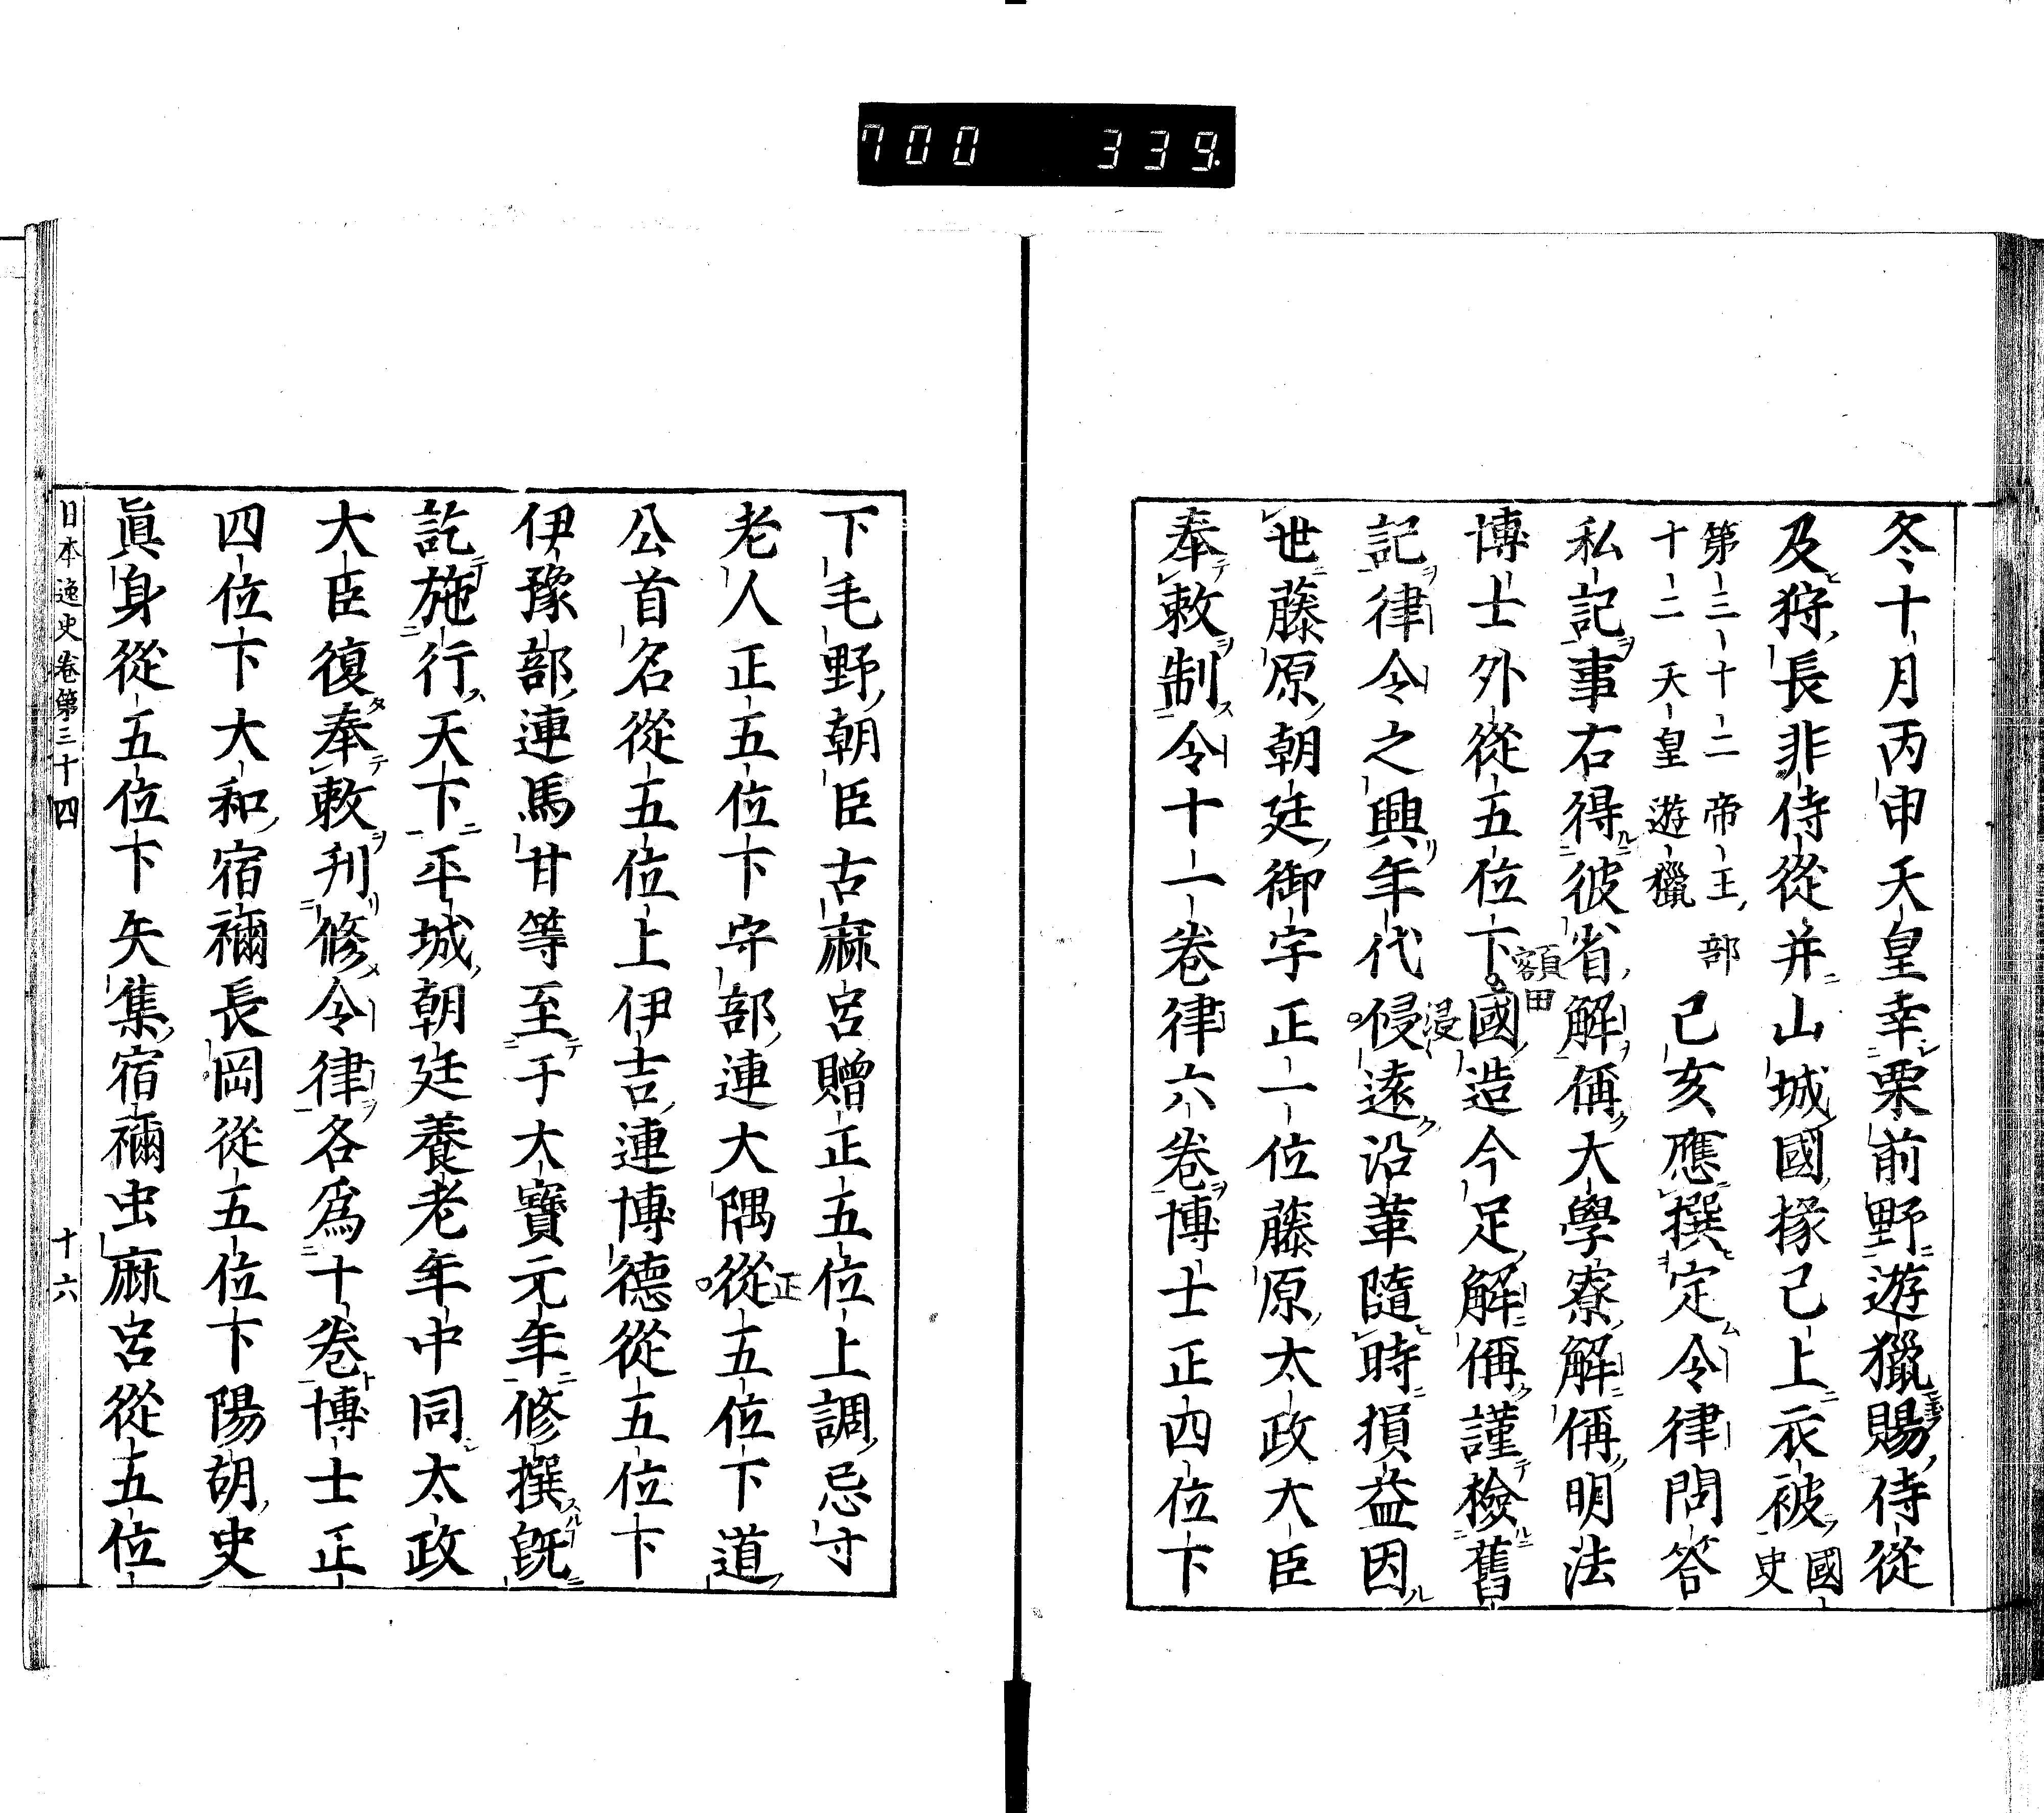 700 339
冬十月丙申天皇幸栗前野遊獵賜侍從
及狩長非侍從并山城國掾已上衣被國史
第三十二帝王部
十二天皇遊獵
己亥應撰定令律問答
私記事右得彼省解偁大學寮解偁明法
博士外從五位下國造今足解偁謹檢舊
額田
記律令之興年代侵遠沿革隨時損益因
浸
世藤原朝廷御宇正一位藤原太政大臣
奉敕制令十一卷律六卷博士正四位下
下毛野朝臣古麻呂贈正五位上調忌寸
老人正五位下守部連大隅從五位下道
正
公首名從五位上伊吉連博德從五位下
伊豫部連馬甘等至于大寶元年修撰既
訖施行天下平城朝廷養老年中同太政
大臣復奉敕刋修令律各爲十卷博士正
四位下大和宿禰長岡從五位下陽胡史
眞身從五位下矢集宿禰虫麻呂從五位
日本逸史卷第三十四 十六